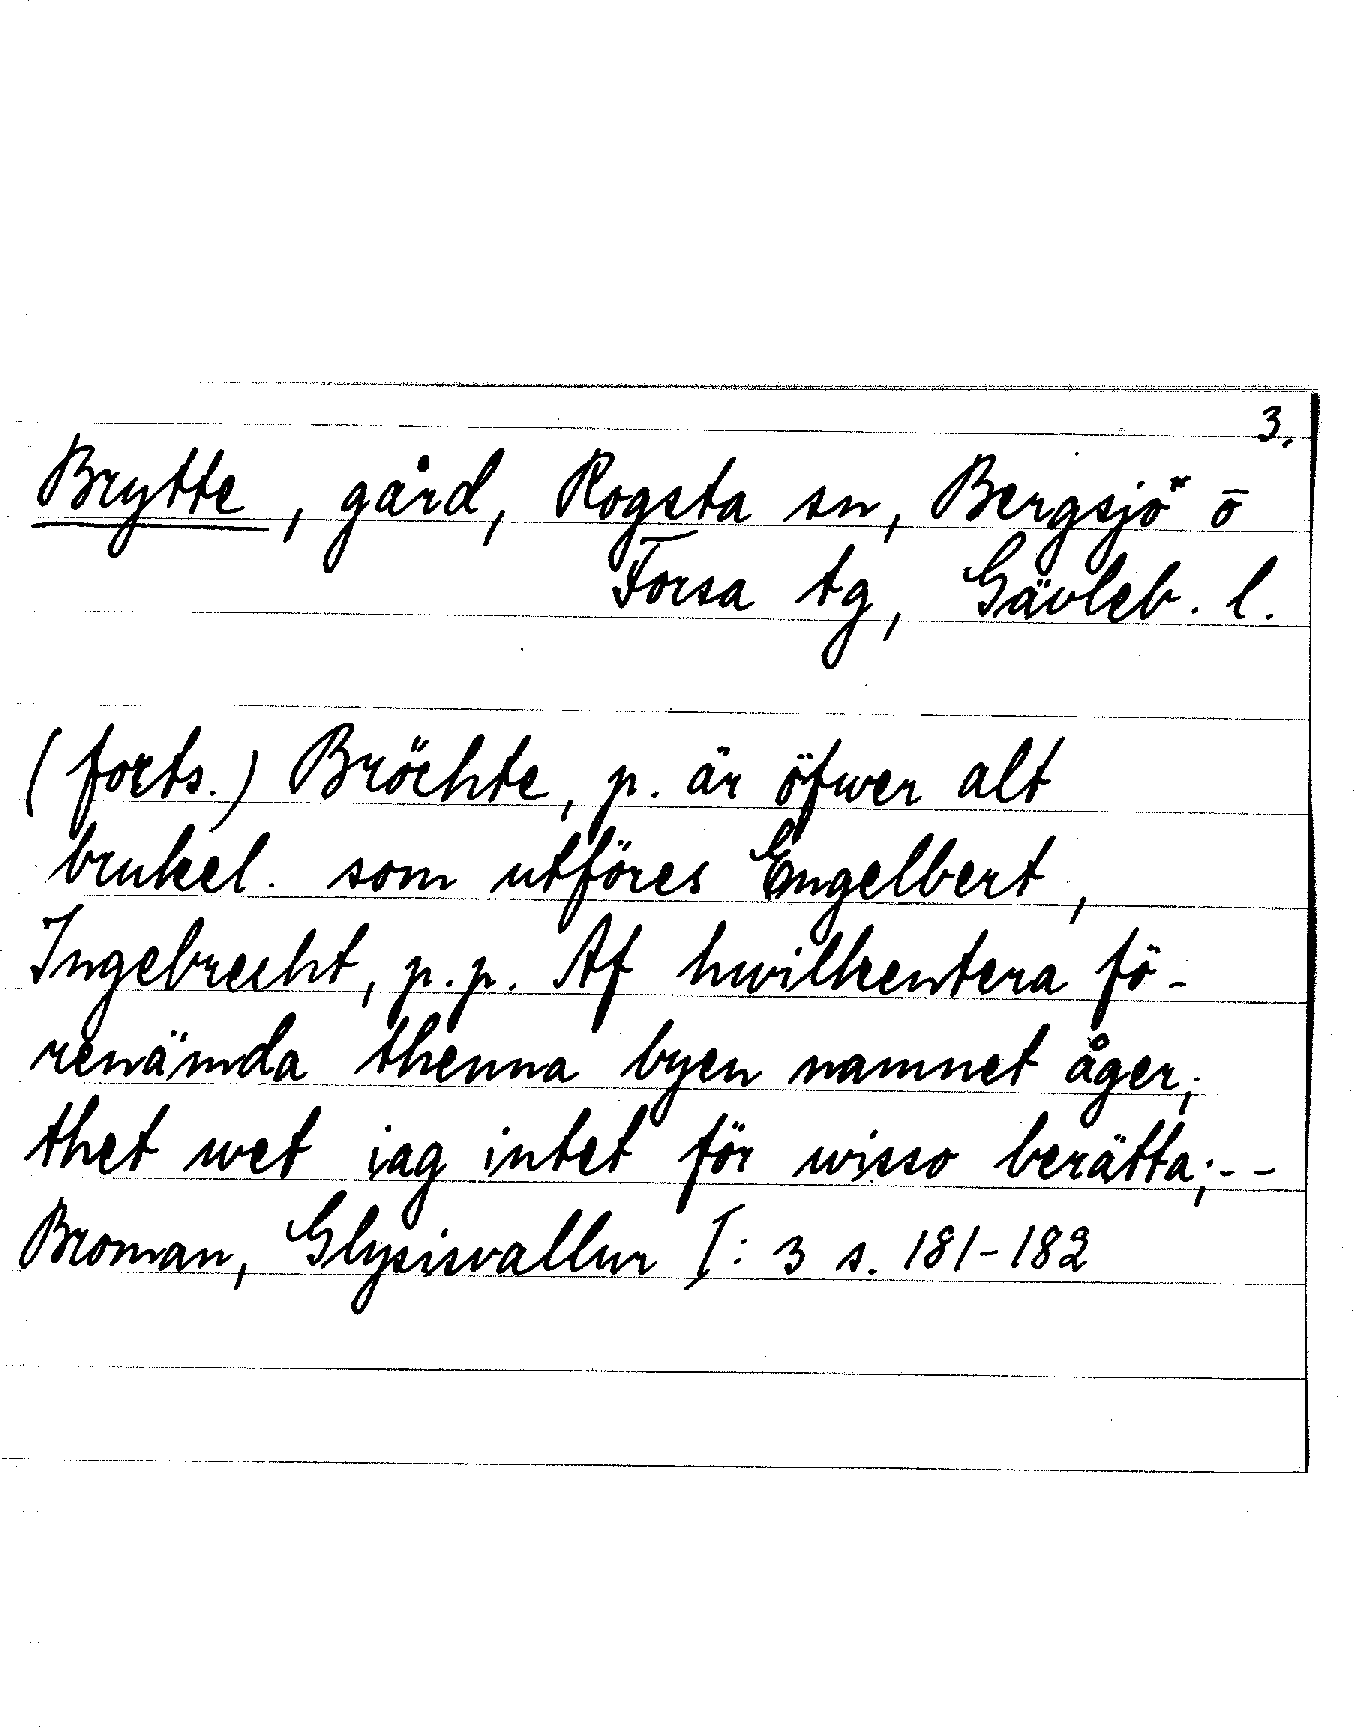 3.
Brytte, gård, Rogsta sn, Bergsjö o
Forsa tg, Gävleb. l.
(forts.) Bröchte, p. är öfwer alt
brukel. som utföres Engelbert,
Ingebrecht, p.p. Af hwilkentera fö-
renämda thenna byen namnet åger,
thet wet iag intet för wisso berätta;--
Broman, Glysisvallur I: 3 s. 181-182